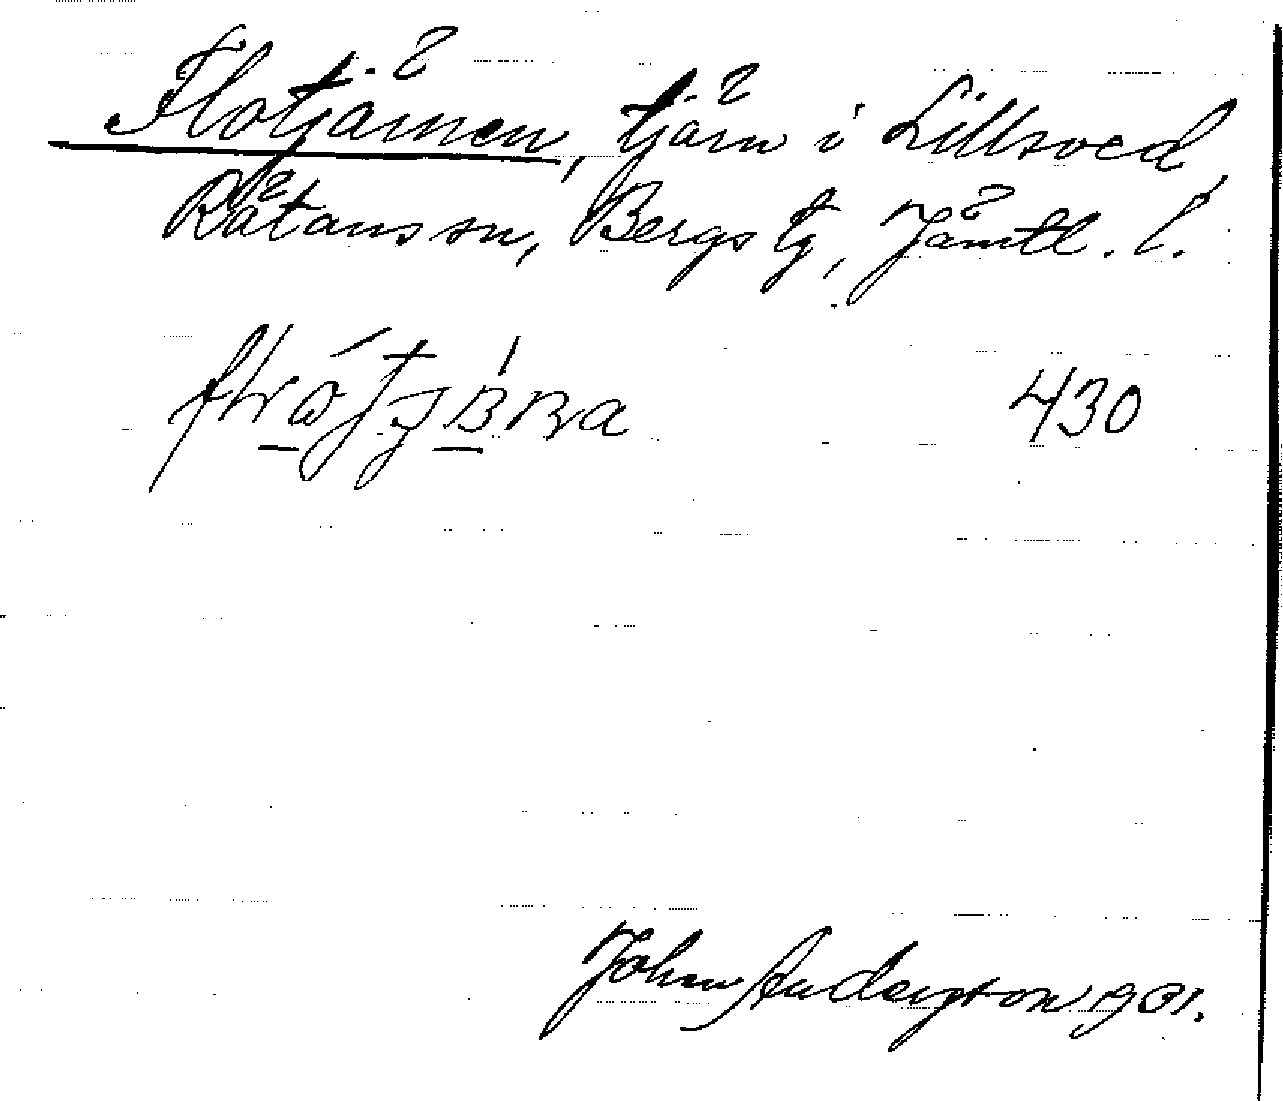 Flotjärnen, tjärn i Lillsved,
Rätans sn, Bergs tg, Jämtl. l.
430
John Andersson 1931.